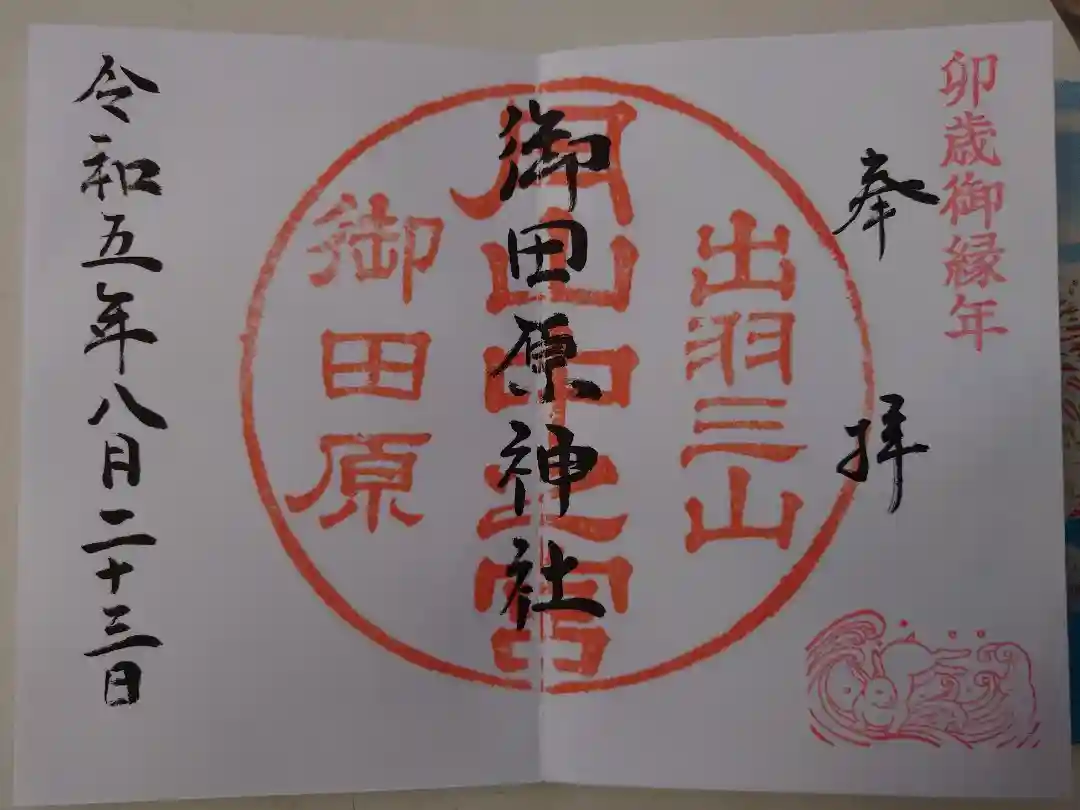 卯歳御縁年
奉拝
出羽三山
月山中之宮
御田原神社
御田原
令和五年八月二十三日